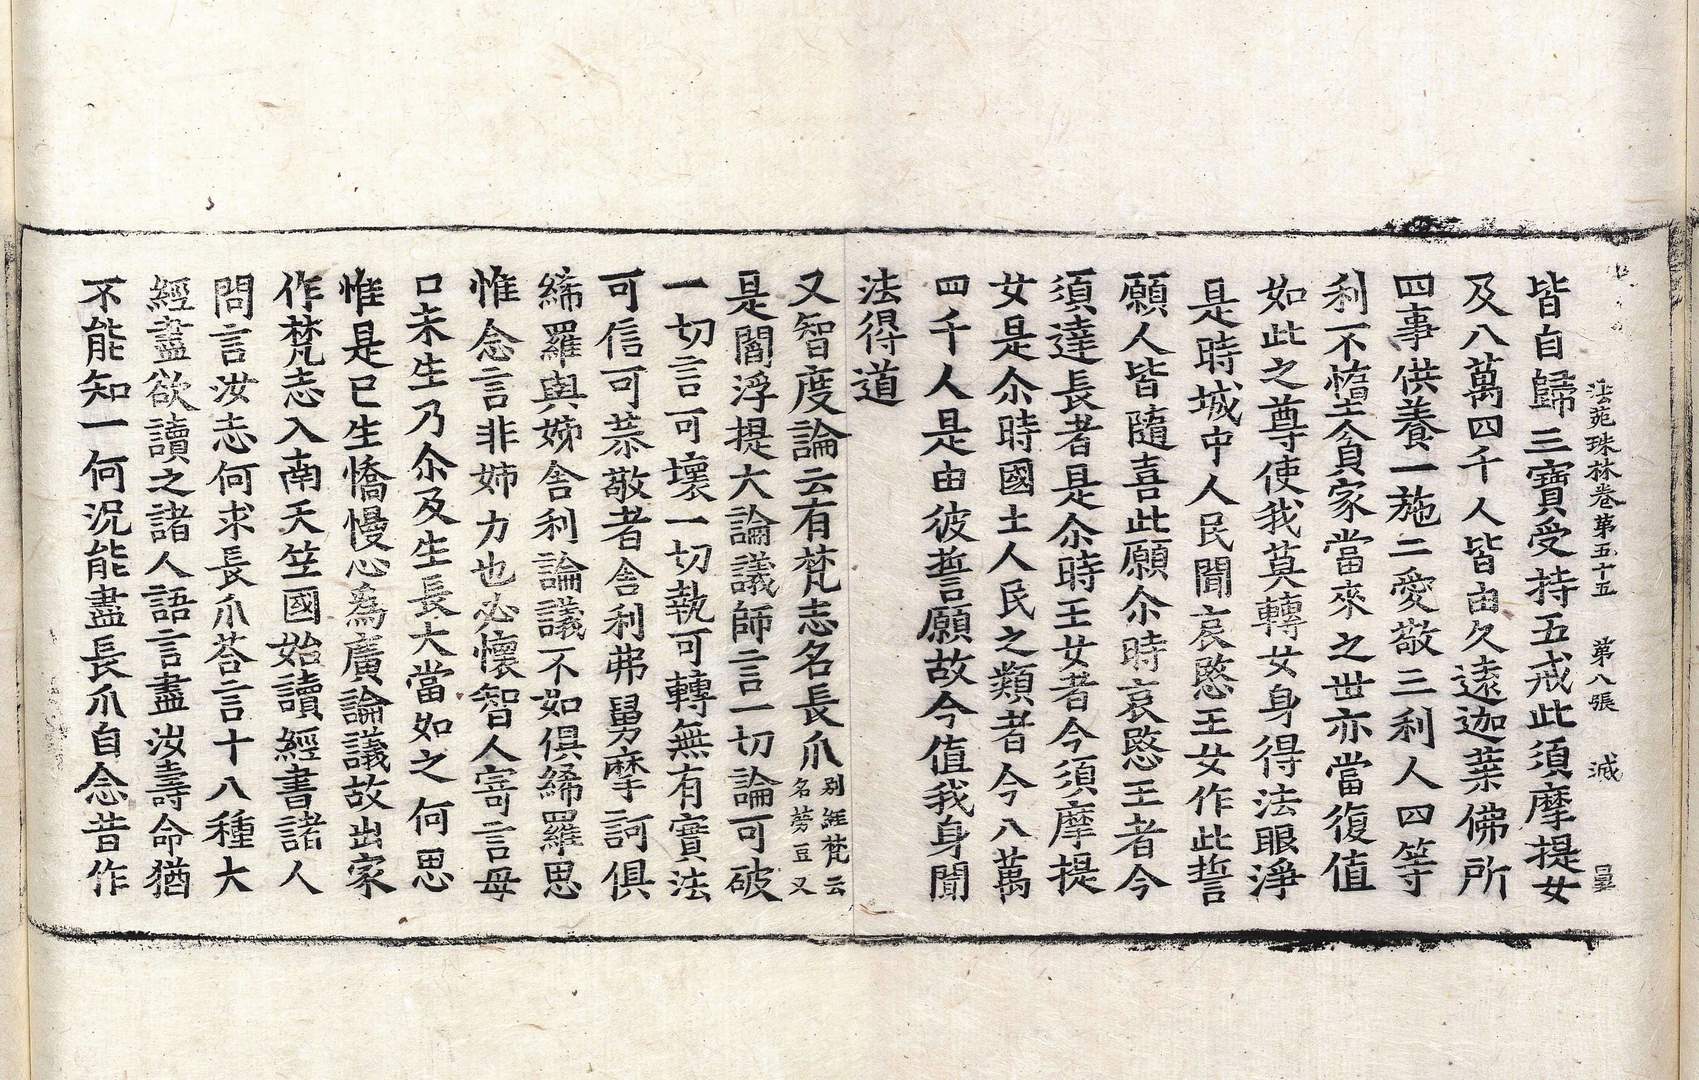 法苑珠林卷第五十五　第八張　滅
皆自歸三寶受持五戒此須摩提女
及八萬四千人皆由久遠迦葉佛所
四事供養一施二愛敬三利人四等
利不憜貪家當來之世亦當復值
如此之尊使我莫轉女身得法眼淨
是時城中人民聞哀愍王女作此誓
願人皆隨喜此願尒時哀愍王者今
須達長者是尒時王女者今須摩提
女是尒時國土人民之類者今八萬
四千人是由彼誓願故今值我身聞
法得道
又智度論云有梵志名長爪別經梵云名䓯豆又
是閻浮提大論議師言一切論可破
一切言可壞一切執可轉無有實法
可信可恭敬者舍利弗舅摩訶俱
絺羅與姊舍利論議不如俱絺羅思
惟念言非姊力也必懷智人寄言母
口未生乃尒及生長大當如之何思
惟是已生憍慢心為廣論議故出家
作梵志入南天竺國始讀經書諸人
問言汝志何求長爪荅言十八種大
經盡欲讀之諸人語言盡汝壽命猶
不能知一何況能盡長爪自念昔作